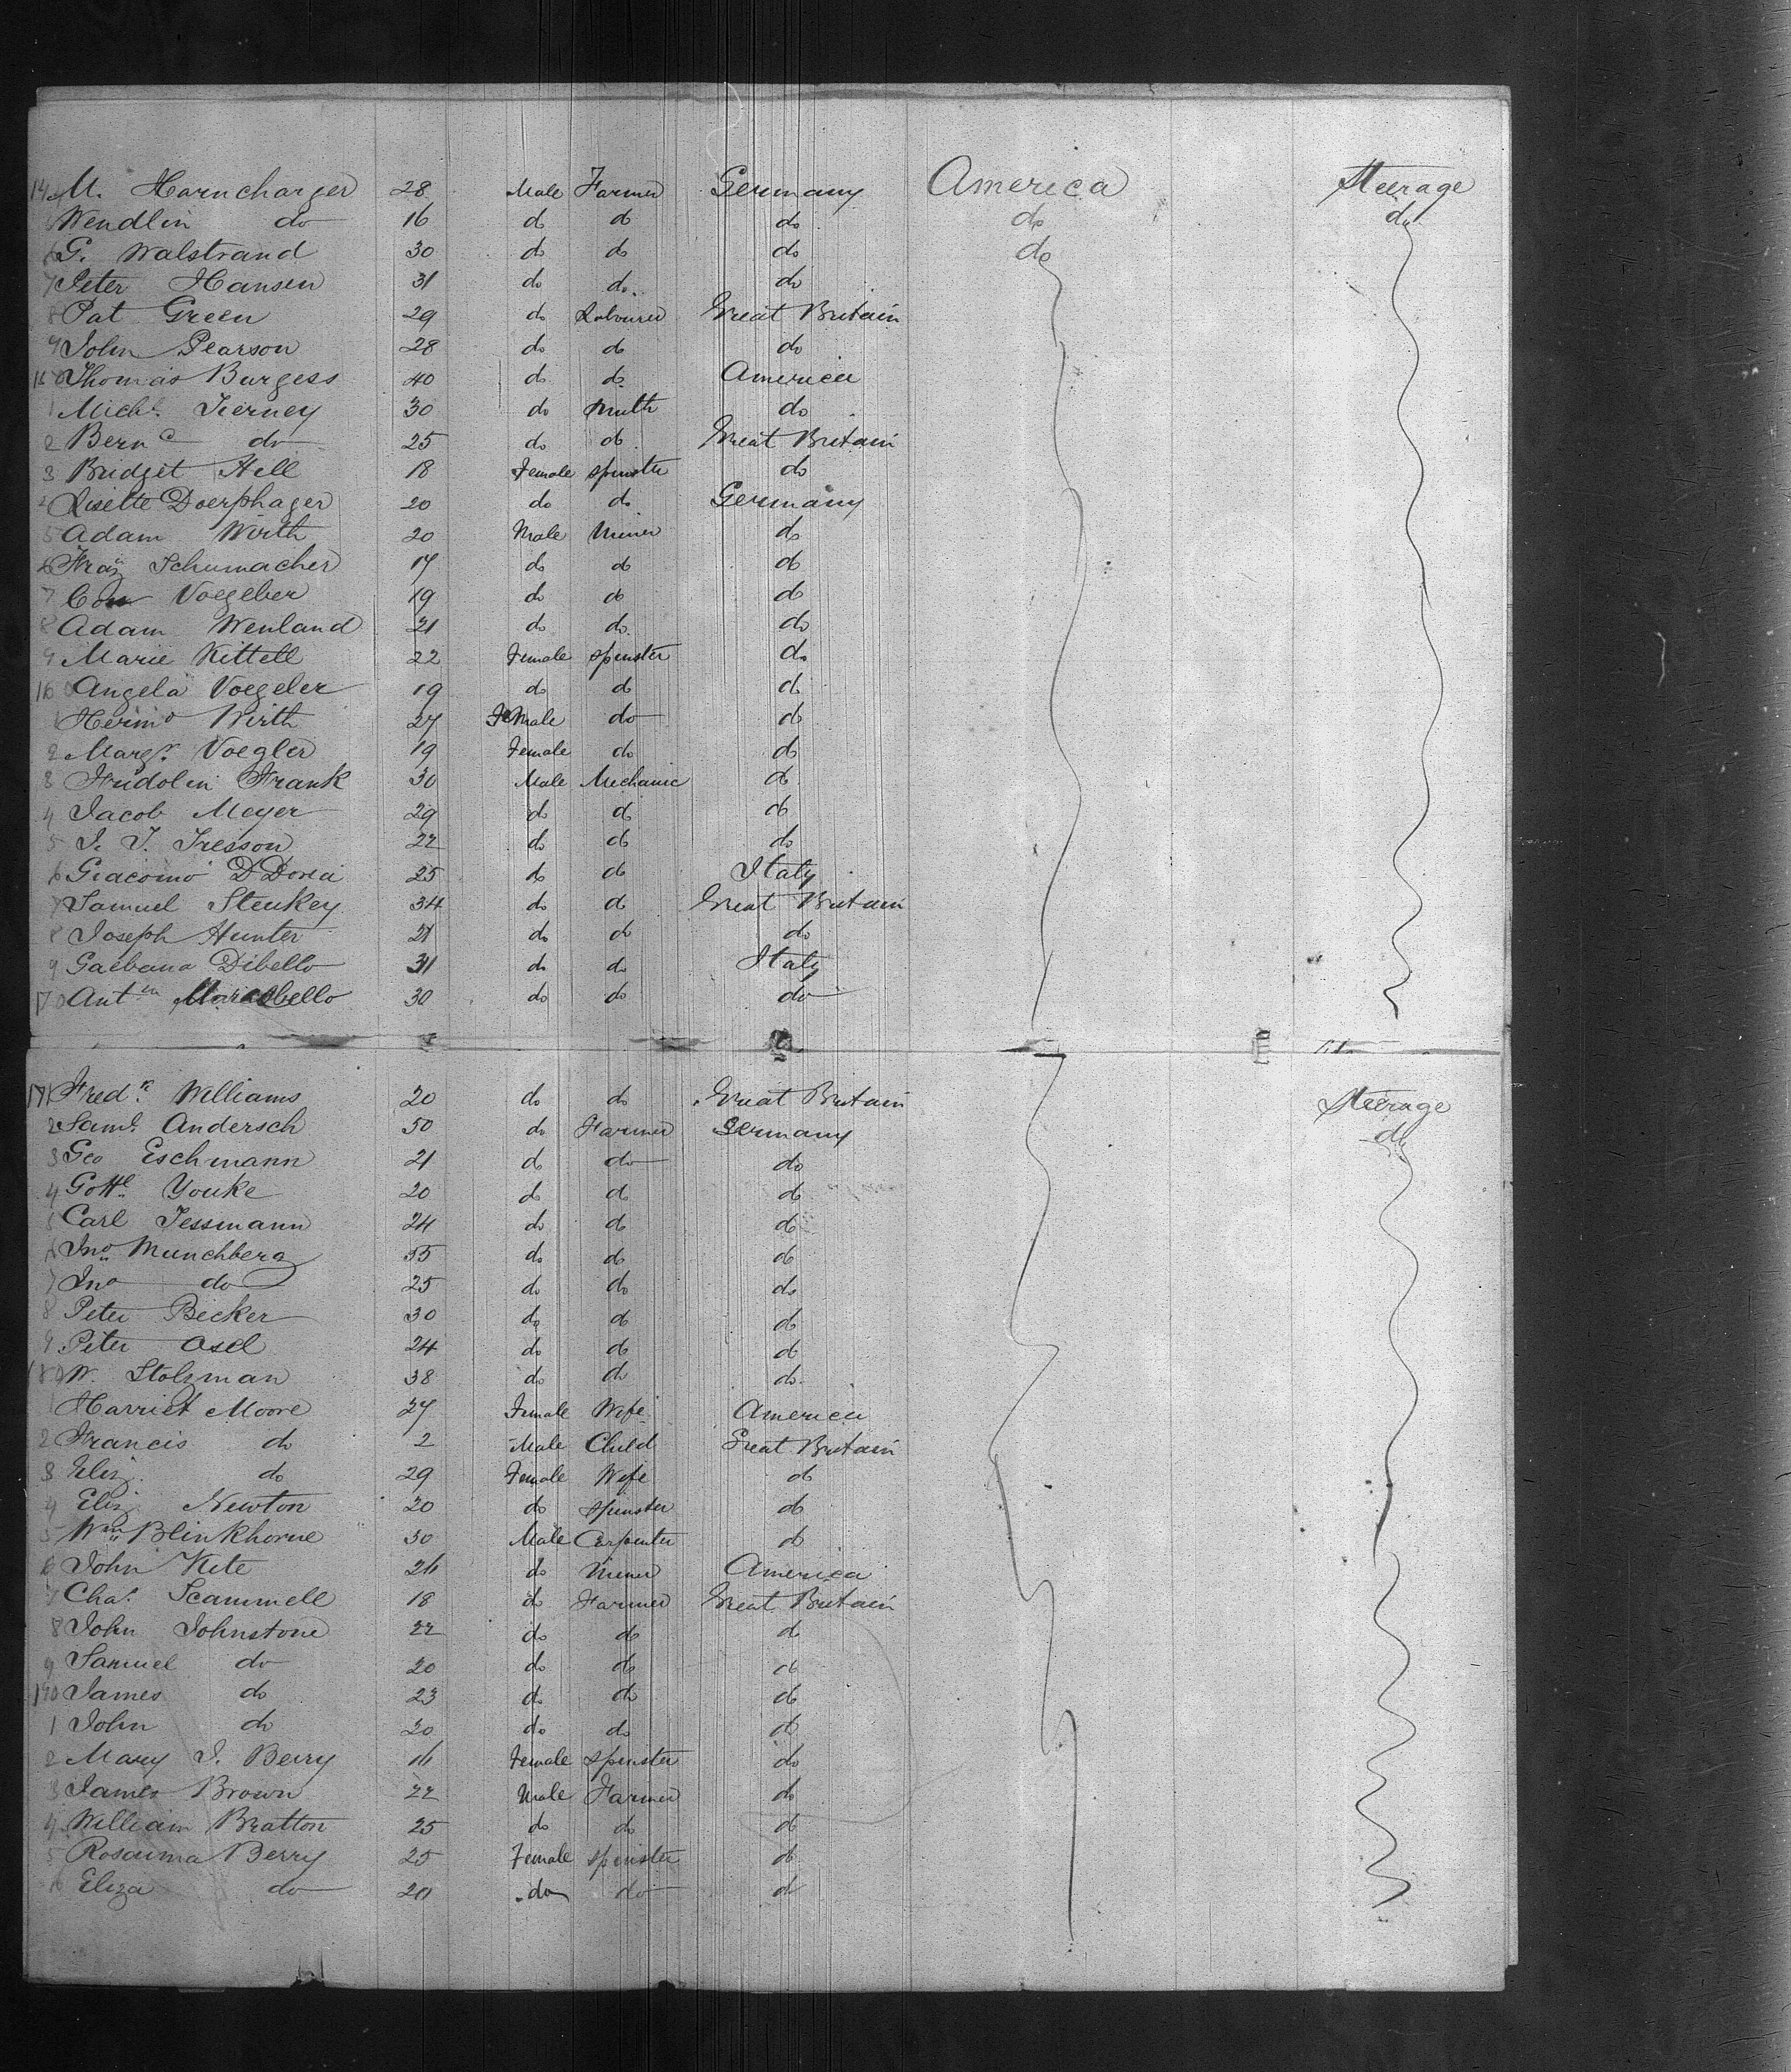 14 M. Harncharger 28 Male Farmer Germany America Steerage
Wendlin do 16 do do do do do
6 G. Walstrand 30 do do do do
7 Peter Hansen 31 do do do
8 Pat Green 29 do Labourer Great Britain
9 John Pearson 28 do do do
150 Thomas Burgess 40 do do America
1 Michl. Tierney 30 do Smith do
2 Bernd do 25 do do Great Britain
3 Bridget Hell 18 Female Spinster do
4 Lisette Doerphager 20 do do Germany
5 Adam Wirth 20 Male Miner do
6 Franz Schumacher 17 do do do
7 Voegeber 19 do do do
8 Adam Wenland 21 do do do
9 Marie Kittell 22 Female Spinster do
160 Angela Voegeler 19 do do do
1 Hermo Wirth 27 Female do do
2 Margr. Voegler 19 Female do do
3 Fridolin Frank 30 Male Mechanic do
4 Jacob Meyer 29 do do do
5 J. J. Tresson 22 do do do
6 Giacomo D Doria 25 do do Italy
7 Samuel Steukey 34 do do Great Britain
8 Joseph Hunter 21 do do do
9 Gaebana Dibello 31 do do Italy
170 Antna Morabello 30 do do do
171 Fredk. Williams 20 do do Great Britain Steerage
2 Saml. Andersch 50 do Farmer Germany do
3 Geo Eschmann 21 do do do
4 Gottl. Youke 20 do do do
5 Carl Jessmann 24 do do do
6 Jno Munchberg 55 do do do
7 Jno do 25 do do do
8 Peter Becker 30 do do do
9 Peter Asel 24 do do do
180 W. Stolzman 38 do do do
1 Harriet Moore 27 Female Wife America
2 Francis do 2 Male Child Great Britain
3 Eliz. do 29 Female Wife do
4 Eliz. Newton 20 do Spinster do
5 Wm Blinkhorne 30 Male Carpenter do
6 John Kite 26 do Miner America
7 Chas. Scammell 18 do Farmer Great Britain
8 John Johnstone 22 do do do
9 Samuel do 20 do do do
190 James do 23 do do do
1 John do 20 do do do
2 Mary J. Berry 16 Female Spinster do
3 James Brown 22 Male Farmer do
4 William Bratton 25 do do do
5 Rosanna Berry 25 Female Spinster do
6 Eliza do 20 do do do